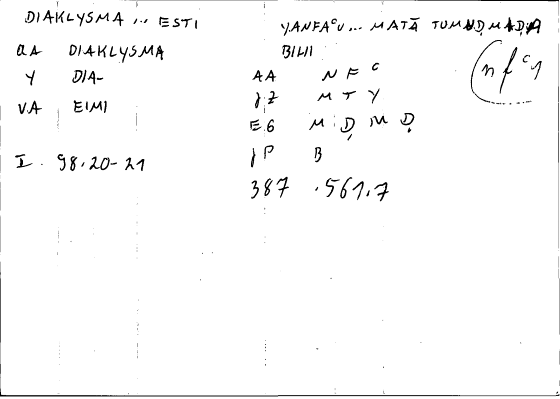 DIAKLYSMA ... ESTI
aA DIAKLYSMA
Y DIA-
VA EIMI
I. 98.20-21
YANFAᶜU ... MATĀ TUMUḌMAḌA
BIHI
AA N F C
γZ M T Y
E6 M Ḍ M Ḍ
γP B
387 .561.7
(nfᶜ1